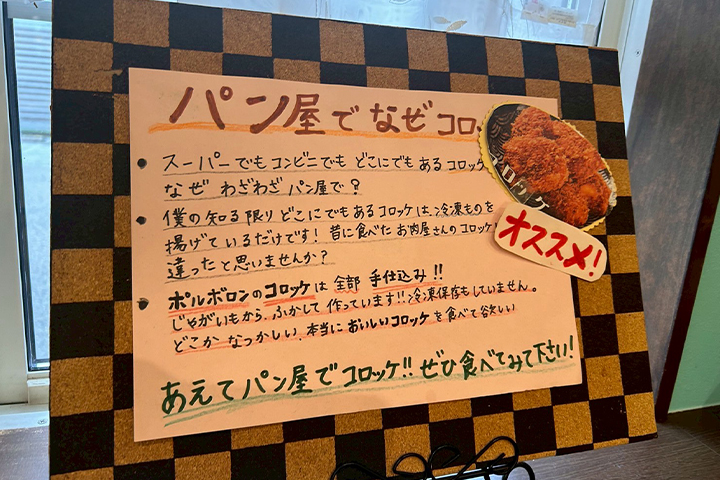 パン屋でなぜコロッ
コロッケ
オススメ!
・スーパーでもコンビニでもどこにでもあるコロッケ
なぜわざわざパン屋で?
・僕の知る限りどこにでもあるコロッケは、冷凍ものを
揚げているだけです!昔に食べたお肉屋さんのコロッケ
違ったと思いませんか?
・ポルボロンのコロッケは全部手仕込み!!
じゃがいもから、ふかして作っています!!冷凍保存もしていません。
どこかなつかしい、本当においしいコロッケを食べて欲しい
あえてパン屋でコロッケ!!ぜひ食べてみて下さい!